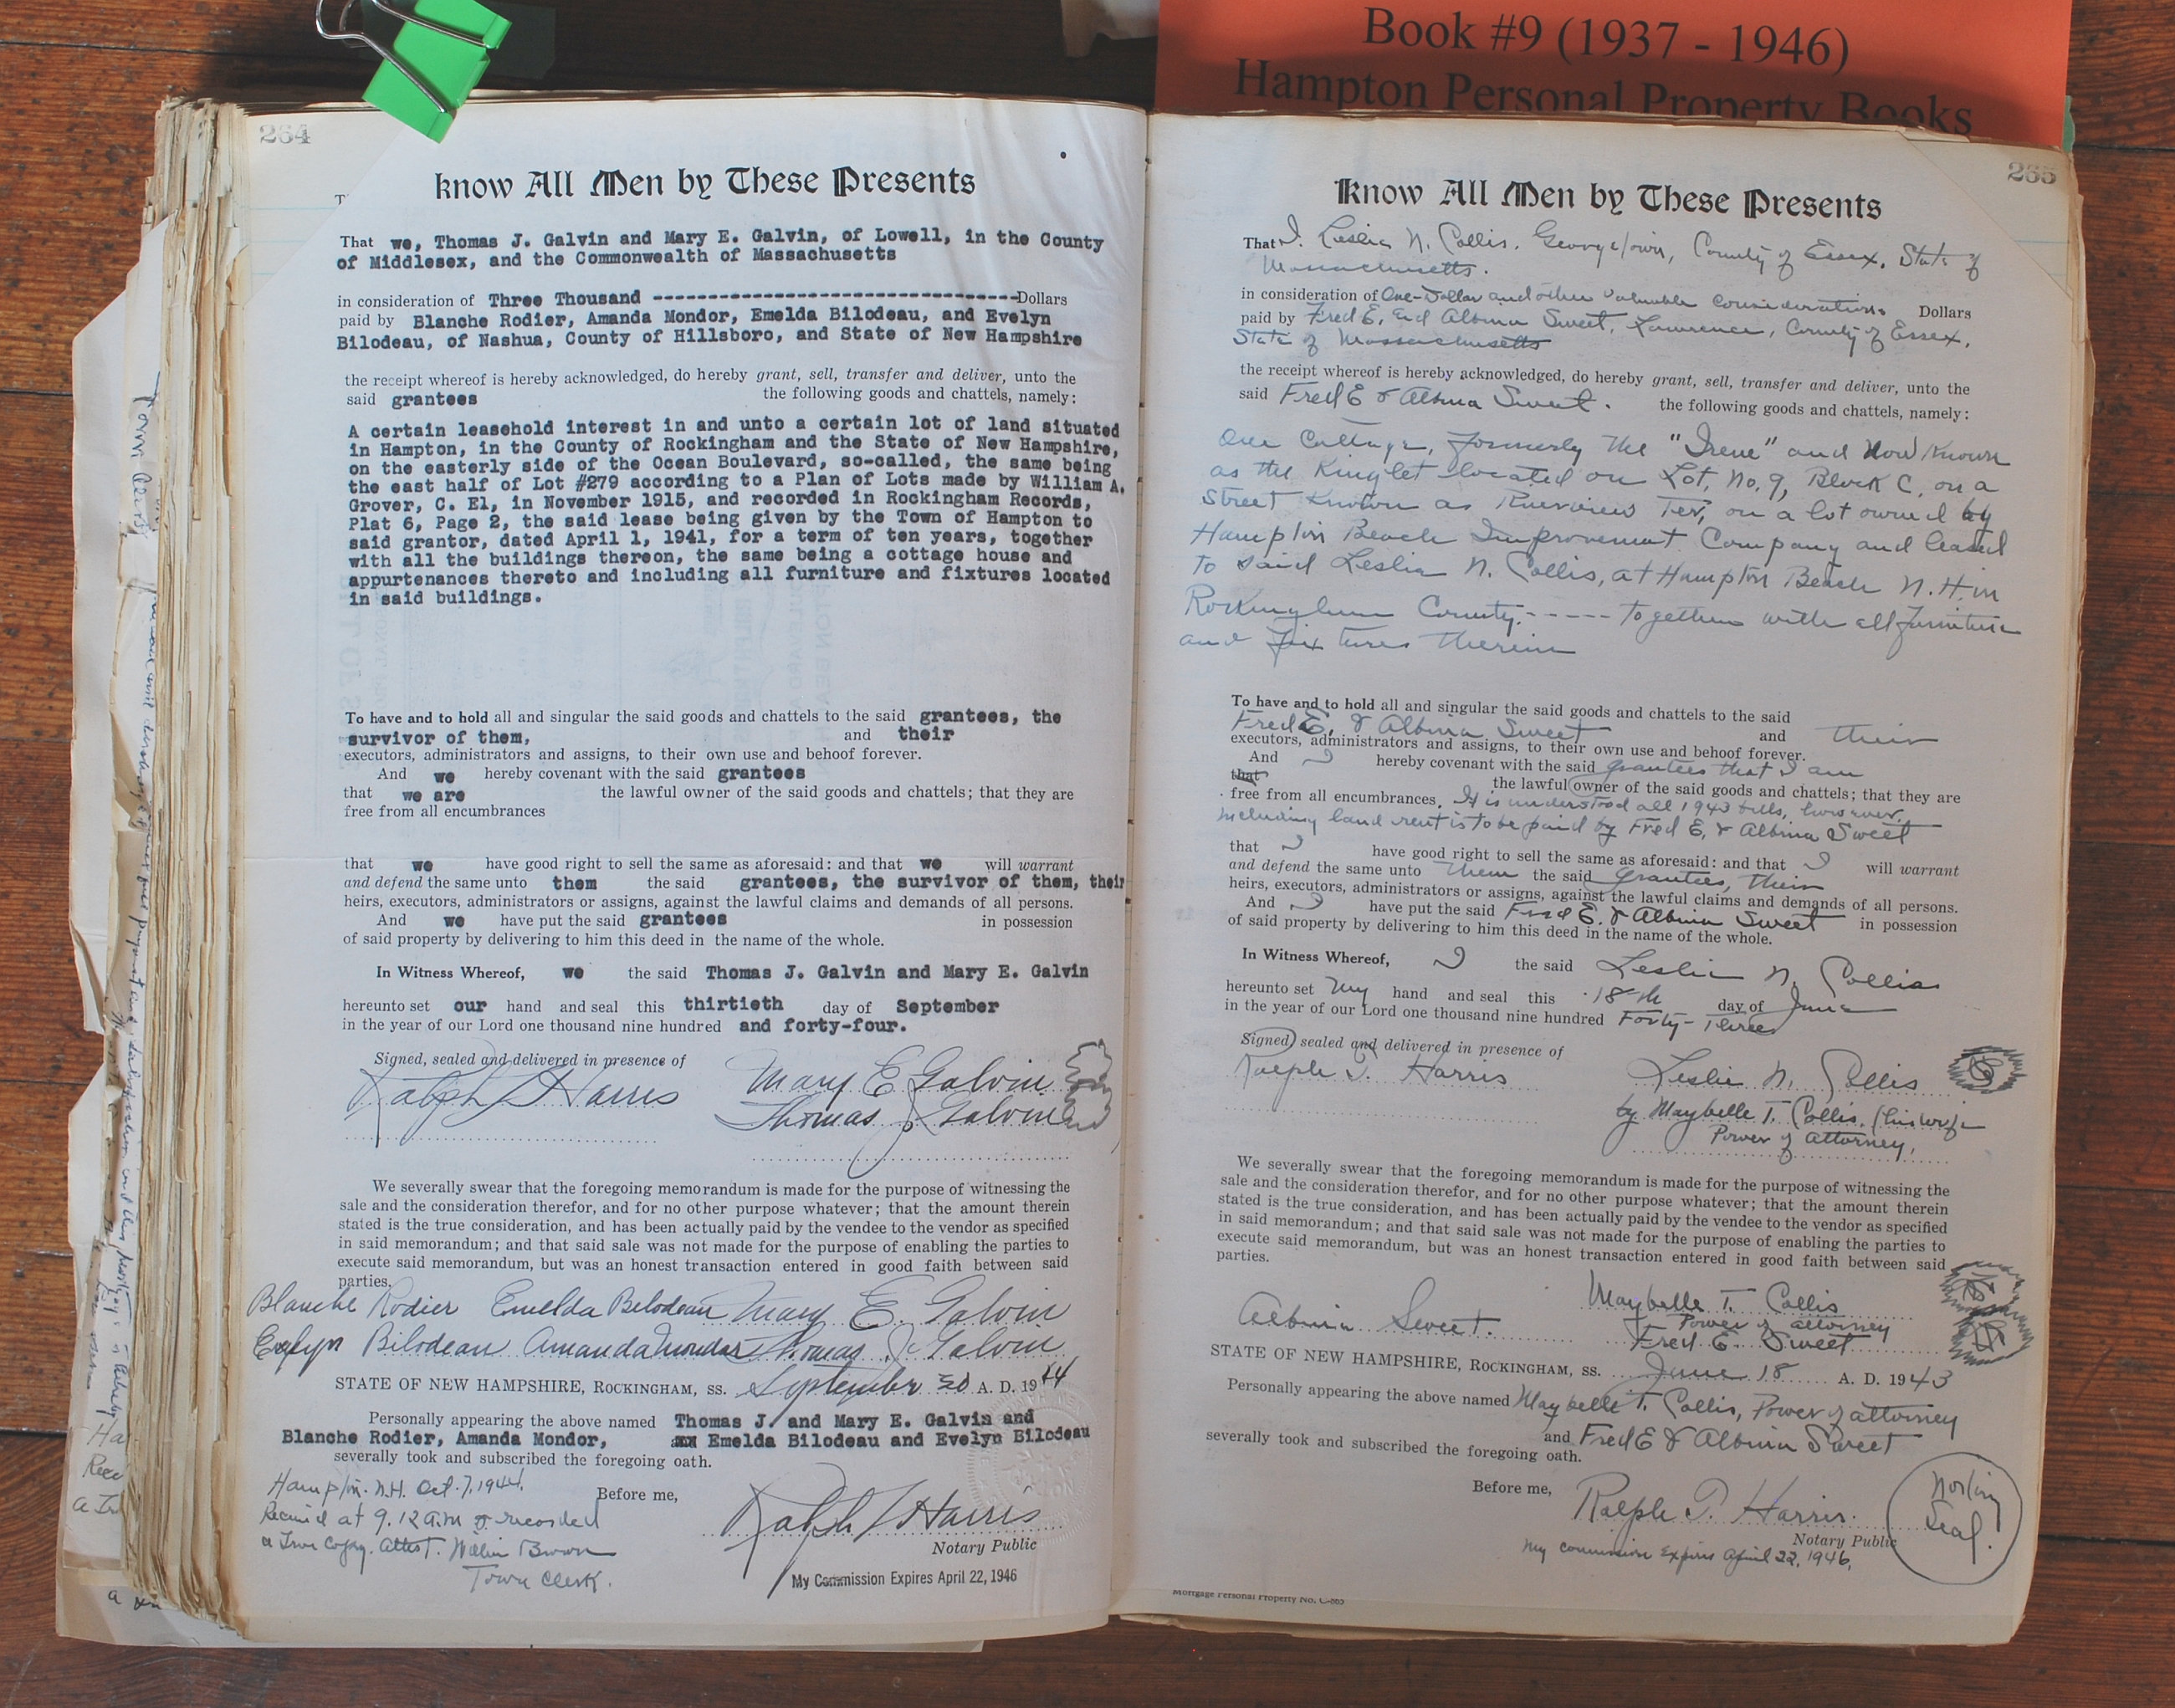 Book #9 (1937 - 1946)
Hampton Personal Property Books
264
Know All Men by These Presents
That we, Thomas J. Galvin and Mary E. Galvin, of Lowell, in the County
of Middlesex, and the Commonwealth of Massachusetts
in consideration of Three Thousand ---------------------------------Dollars
paid by Blanche Rodier, Amanda Mondor, Emelda Bilodeau, and Evelyn
Bilodeau, of Nashua, County of Hillsboro, and State of New Hampshire
the receipt whereof is hereby acknowledged, do hereby grant, sell, transfer and deliver, unto the
said grantees the following goods and chattels, namely:
A certain leasehold interest in and unto a certain lot of land situated
in Hampton, in the County of Rockingham and the State of New Hampshire,
on the easterly side of the Ocean Boulevard, so-called, the same being
the east half of Lot #279 according to a Plan of Lots made by William A.
Grover, C. El, in November 1915, and recorded in Rockingham Records,
Plat 6, Page 2, the said lease being given by the Town of Hampton to
said grantor, dated April 1, 1941, for a term of ten years, together
with all the buildings thereon, the same being a cottage house and
appurtenances thereto and including all furniture and fixtures located
in said buildings.
To have and to hold all and singular the said goods and chattels to the said grantees, the
survivor of them, and their
executors, administrators and assigns, to their own use and behoof forever.
And we hereby covenant with the said grantees
that we are the lawful owner of the said goods and chattels; that they are
free from all encumbrances
that we have good right to sell the same as aforesaid: and that we will warrant
and defend the same unto them the said grantees, the survivor of them, their
heirs, executors, administrators or assigns, against the lawful claims and demands of all persons.
And we have put the said grantees in possession
of said property by delivering to him this deed in the name of the whole.
In Witness Whereof, we the said Thomas J. Galvin and Mary E. Galvin
hereunto set our hand and seal this thirtieth day of September
in the year of our Lord one thousand nine hundred and forty-four.
Signed, sealed and delivered in presence of
Ralph T Harris Mary E Galvin
Thomas J Galvin
We severally swear that the foregoing memorandum is made for the purpose of witnessing the
sale and the consideration therefor, and for no other purpose whatever; that the amount therein
stated is the true consideration, and has been actually paid by the vendee to the vendor as specified
in said memorandum; and that said sale was not made for the purpose of enabling the parties to
execute said memorandum, but was an honest transaction entered in good faith between said
parties.
Blanche Rodier Emelda Bilodeau Mary E. Galvin
Evelyn Bilodeau Amanda Mondor Thomas J. Galvin
STATE OF NEW HAMPSHIRE, ROCKINGHAM, SS. September 30 A. D. 1944
Personally appearing the above named Thomas J. and Mary E. Galvin and
Blanche Rodier, Amanda Mondor, Emelda Bilodeau and Evelyn Bilodeau
severally took and subscribed the foregoing oath.
Hampton. N.H. Oct. 7, 1944.
Before me,
Received at 9.12 A.M & recorded
a True Copy. Attest. William Brown
Town Clerk.
Ralph T Harris
Notary Public
My Commission Expires April 22, 1946
265
Know All Men by These Presents
That I. Leslie N. Collis. Georgetown, County of Essex, State of
Massachusetts.
in consideration of One-Dollar and other valuable considerations Dollars
paid by Fred E. and Albina Sweet, Lawrence, County of Essex,
State of Massachusetts
the receipt whereof is hereby acknowledged, do hereby grant, sell, transfer and deliver, unto the
said Fred E & Albina Sweet. the following goods and chattels, namely:
One Cottage, formerly the "Irene" and Now Known
as the Kinglet located on Lot, No. 9, Block C, on a
Street Known as Riverview Ter, on a lot owned by
Hampton Beach Improvement Company and leased
to said Leslie N. Collis, at Hampton Beach N.H. in
Rockingham County.----- together with all furniture
and fixtures therein
To have and to hold all and singular the said goods and chattels to the said
Fred E. & Albina Sweet and their
executors, administrators and assigns, to their own use and behoof forever.
And I hereby covenant with the said grantees that I am
that the lawful owner of the said goods and chattels; that they are
free from all encumbrances. It is understood all 1943 bills, however,
including land rent is to be paid by Fred E. & Albina Sweet
that I have good right to sell the same as aforesaid: and that I will warrant
and defend the same unto them the said grantees, their
heirs, executors, administrators or assigns, against the lawful claims and demands of all persons.
And I have put the said Fred E. & Albina Sweet in possession
of said property by delivering to him this deed in the name of the whole.
In Witness Whereof, I the said Leslie N. Collis
hereunto set my hand and seal this 18th day of June
in the year of our Lord one thousand nine hundred Forty-Three
Signed, sealed and delivered in presence of
Ralph T. Harris Leslie N. Collis
by Maybelle T. Collis, (his wife
Power of attorney,
We severally swear that the foregoing memorandum is made for the purpose of witnessing the
sale and the consideration therefor, and for no other purpose whatever; that the amount therein
stated is the true consideration, and has been actually paid by the vendee to the vendor as specified
in said memorandum; and that said sale was not made for the purpose of enabling the parties to
execute said memorandum, but was an honest transaction entered in good faith between said
parties.
Maybelle T. Collis
Power of attorney
Albina Sweet. Fred E. Sweet
STATE OF NEW HAMPSHIRE, ROCKINGHAM, SS. June 18 A. D. 1943
Personally appearing the above named Maybelle T. Collis, Power of attorney
and Fred E & Albina Sweet
severally took and subscribed the foregoing oath.
Before me,
Ralph T. Harris.
Notary Public
My commission Expires April 22, 1946.
Seal.
Mortgage Personal Property No. C-865